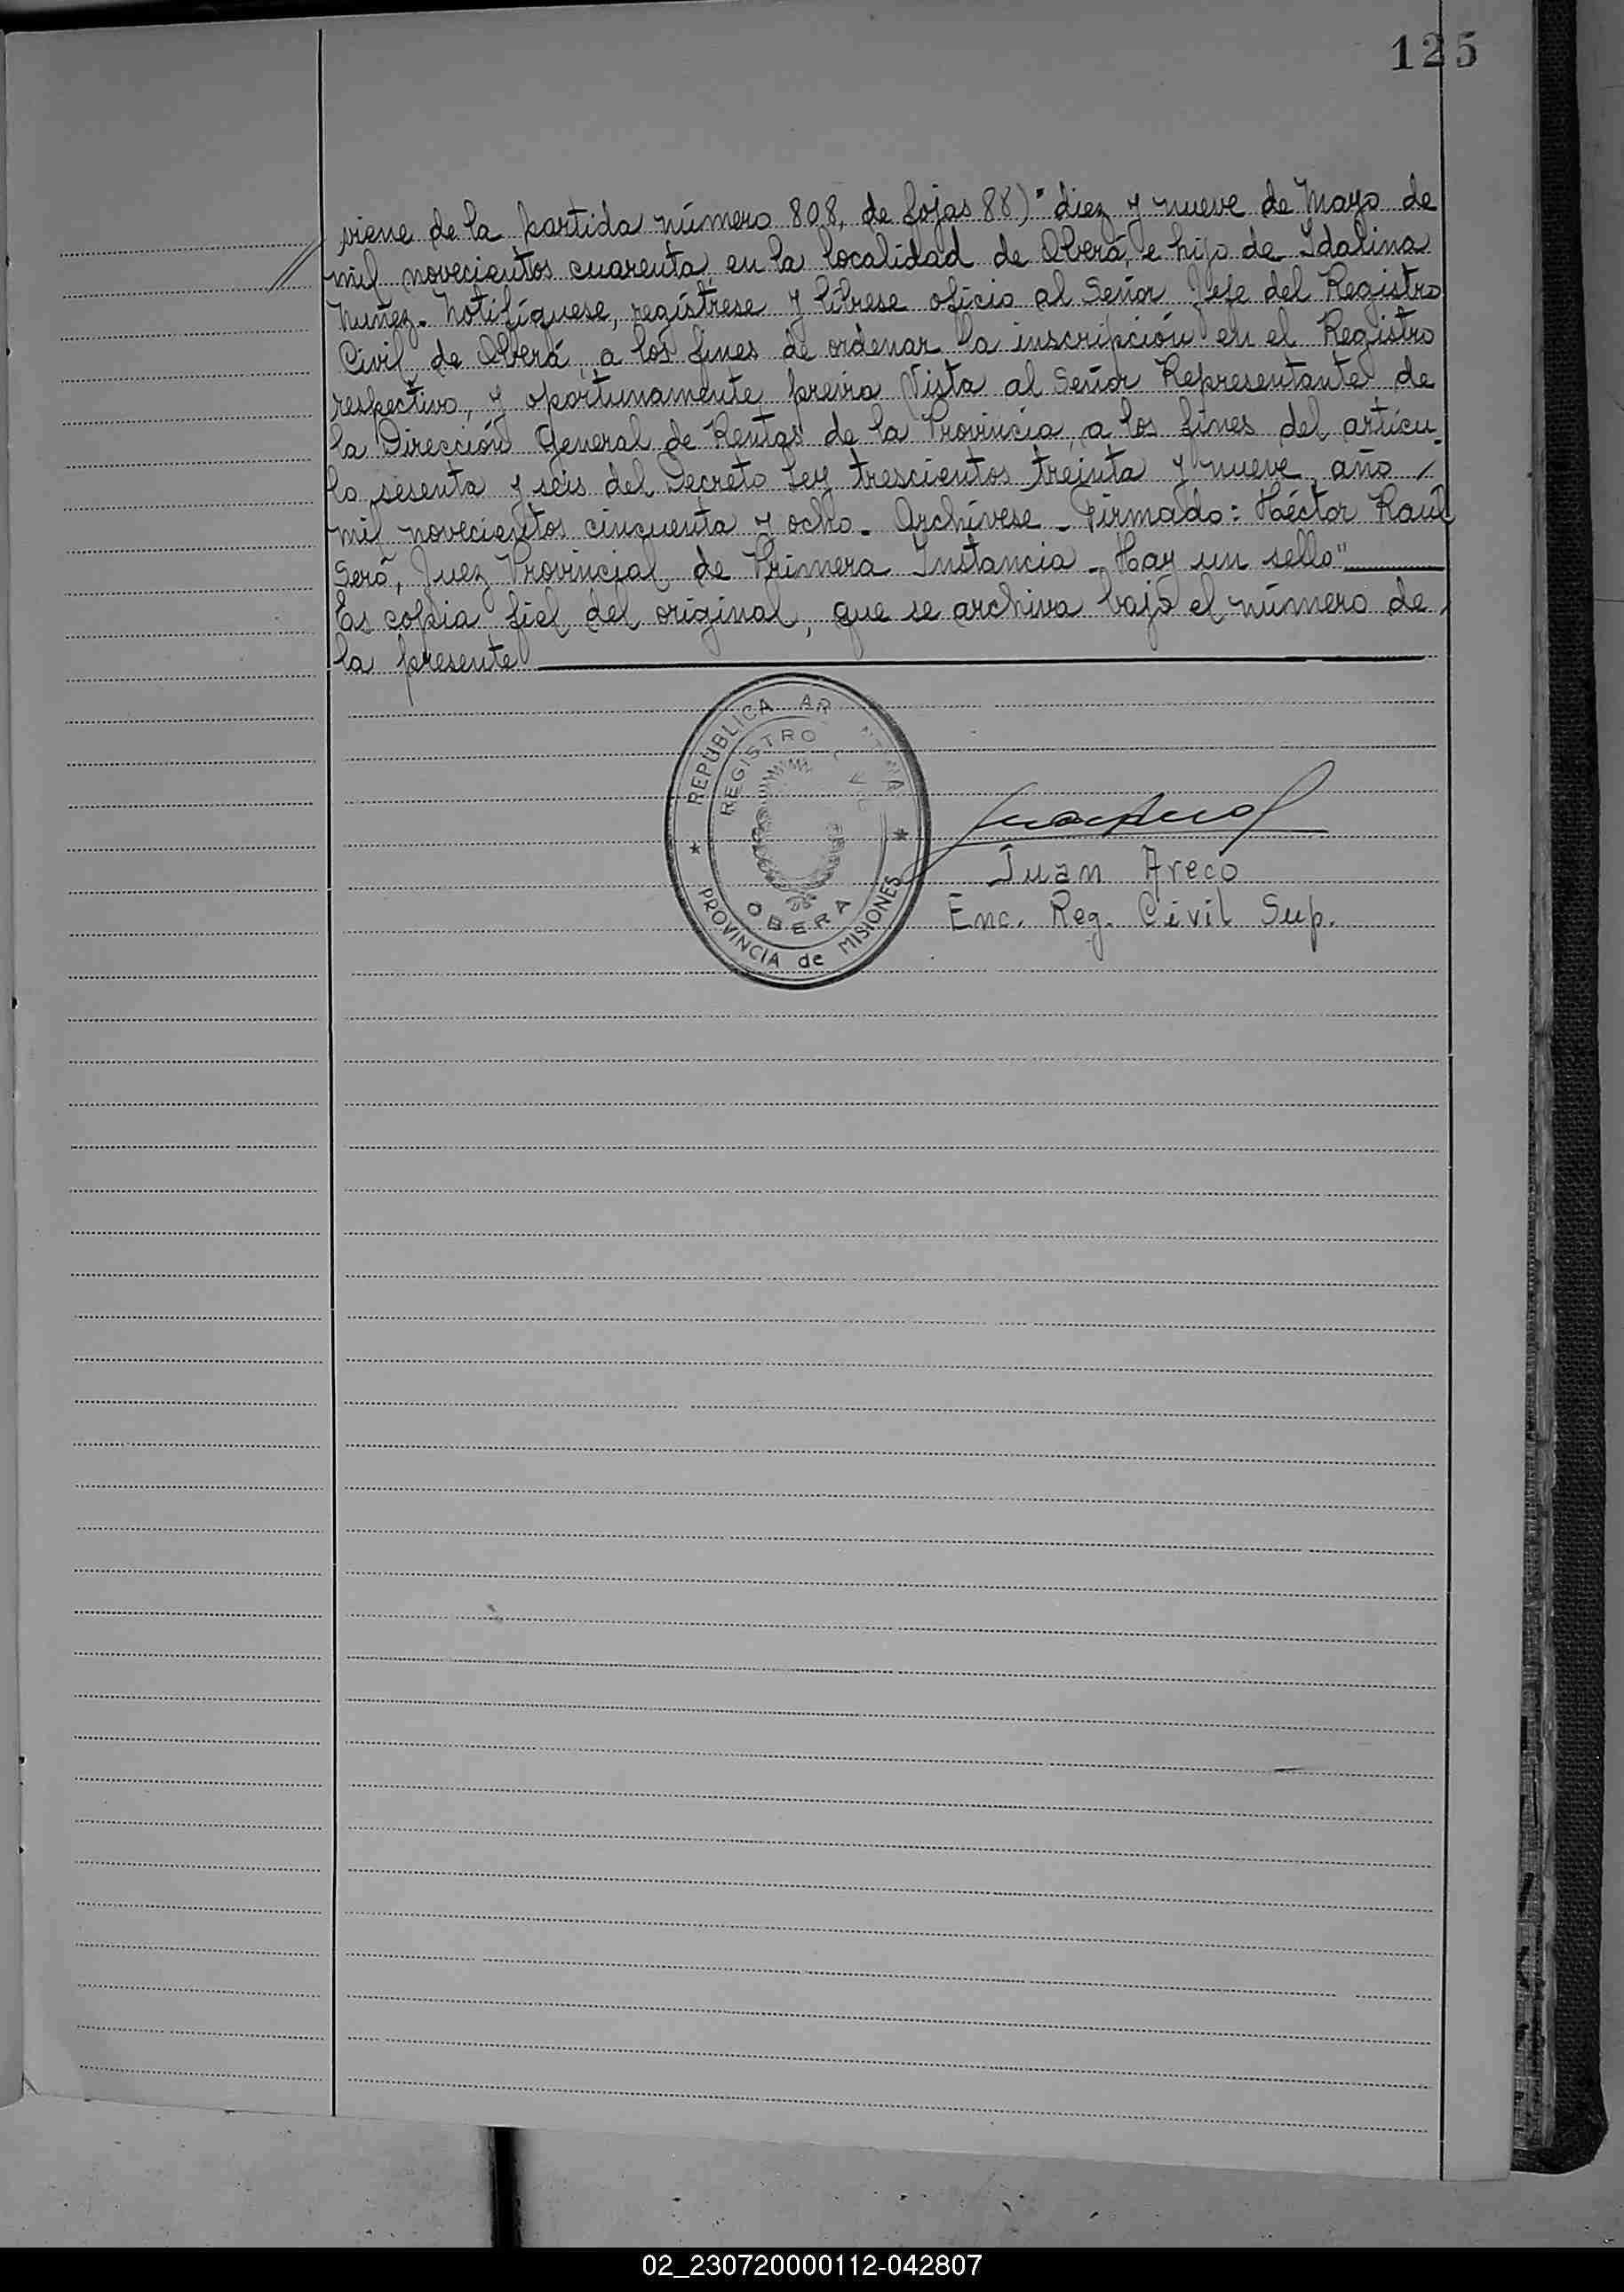 125
viene de la partida número 808, de fojas 88)" diez y nueve de Mayo de
mil novecientos cuarenta, en la localidad de Oberá, e hijo de Idalina
Nuñez. Notifíquese, regístrese y líbrese oficio al Señor Jefe del Registro
Civil de Oberá, a los fines de ordenar la inscripción en el Registro
respectivo, y oportunamente previa Vista al Señor Representante de
la Dirección General de Rentas de la Provincia, a los fines del artícu-
lo sesenta y seis del Decreto Ley trescientos treinta y nueve, año /
mil novecientos cincuenta y ocho. Archívese - Firmado: Héctor Raúl
Seró, Juez Provincial de Primera Instancia - Hay un sello"
Es copia fiel del original, que se archiva bajo el número de
la presente
REPÚBLICA AR NTINA
REGISTRO CIVIL
OBERA
PROVINCIA de MISIONES
Juan Areco
Enc. Reg. Civil Sup.
02_230720000112-042807